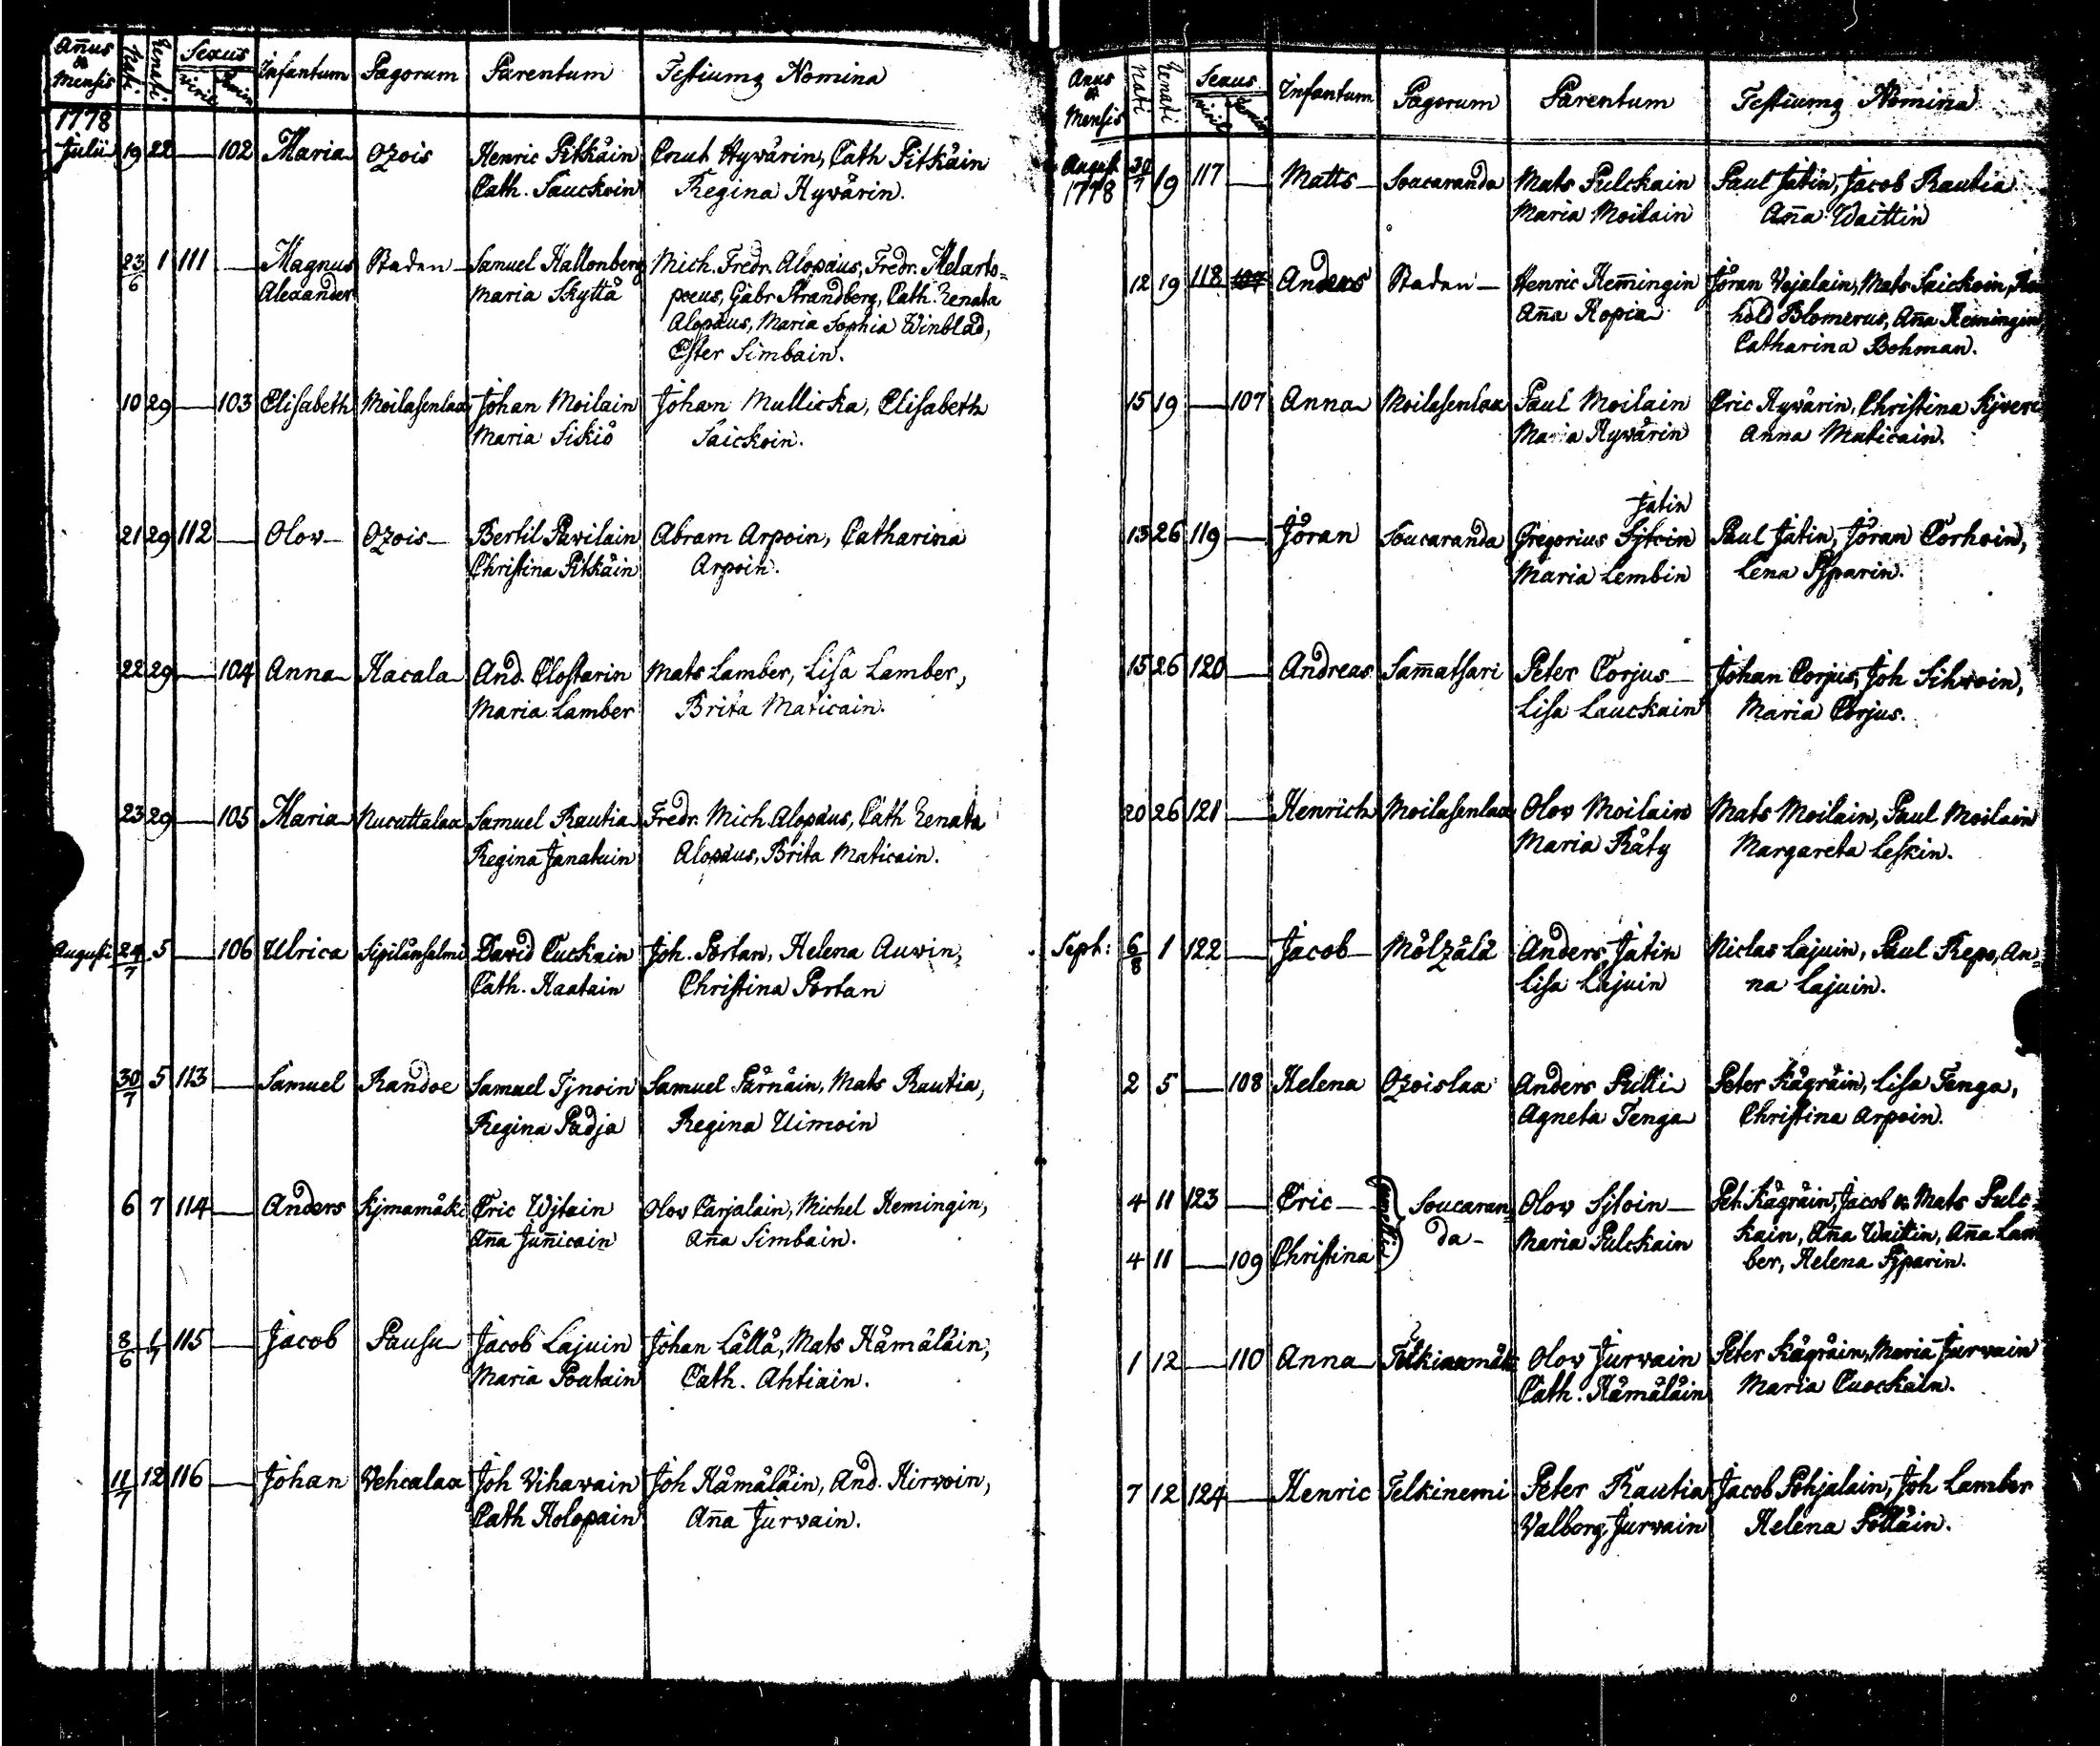 Añus & Mensis Nati. Renati. Sexus Infantum Pagorum Parentum Testiumq Nomina
viril femin
1778
Julii 19 22 — 102 Maria Ozois Henric Pitkäin Cnut Hyvärin, Cath Pitkäin
Cath. Sauckoin Regina Hyvärin.
23/6 1 111 — Magnus Staden Samuel Hallonberg Mich. Fredr. Alopäus, Fredr. Melarto=
Alexander Maria Skyttä poeus, Gabr Strandberg, Cath. Renata
Alopäus, Maria Sophia Winblad,
Ester Simbain.
10 29 — 103 Elisabeth Moilasenlax Johan Moilain Johan Mullicka, Elisabeth
Maria Sikiö Saickoin.
21 29 112 — Olov Ozois Bertil Pavilain Abram Arpoin, Catharina
Christina Pitkäin Arpoin.
22 29 — 104 Anna Hacala And. Clostarin Mats Lamber, Lisa Lamber,
Maria Lamber Brita Maticain.
23 29 — 105 Maria Nucuttalax Samuel Rautia Fredr. Mich Alopäus, Cath Renata
Regina Janatuin Alopäus, Brita Maticain.
Augusti 24/7 5 — 106 Ulrica Sipilänsalmi David Cuckain Joh. Portan, Helena Auvin,
Cath. Haatain Christina Portan
30/7 5 113 — Samuel Randoe Samuel Tjnoin Samuel Pärnäin, Mats Rautia,
Regina Padja Regina Uimoin
6 7 114 — Anders Kjmamäki Eric Wjtain Olov Carjalain, Michel Hemingin,
Aña Juñicain Aña Simbain.
8/6 1/7 115 — Jacob Pausu Jacob Lajuin Johan Lällä, Mats Hämäläin,
Maria Poutain Cath. Ahtiain.
11/7 12 116 — Johan Vehcalax Joh Vihavain Joh Hämäläin, And. Hirvoin,
Cath Holopain Aña Jurvain.
Anus & Mensis Nati Renati Sexus Infantum Pagorum Parentum Testiumq Nomina
viril femin
August. 1778 30/7 19 117 — Matts Soucaranda Mats Pulckain Paul Jatin, Jacob Rautia
Maria Moilain Aña Waittin
12 19 118 107 Anders Staden Henric Hem̃ingin Jöran Vejalain, Mats Saickoin,
Aña Hopia hold Blomerus, Aña Hemingin
Catharina Bohman.
15 19 — 107 Anna Moilasenlax Paul Moilain Eric Hyvärin, Christina
Maria Hyvärin Anna Maticain.
Jatin
13 26 119 — Jöran Soucaranda Gregorius Sjtoin Paul Jatin, Jöran Corhoin,
Maria Lembin Lena Pjparin.
15 26 120 — Andreas Sam̃atsari Peter Corjus Johan Corjus, Joh Sihvoin,
Lisa Lauckain Maria Corjus.
20 26 121 — Henrich Moilasenlax Olov Moilain Mats Moilain, Paul Moilain
Maria Räty Margareta Leskin.
Sept: 6/8 1 122 — Jacob Mölzälä Anders Jatin Niclas Lajuin, Paul Repo, An=
Lisa Lajuin na Lajuin.
2 5 — 108 Helena Ozoislax Anders Pulli Peter Kägräin, Lisa Tenga,
Agneta Tenga Christina Arpoin.
4 11 123 — Eric gemelli Soucaran= Olov Sjtoin Pet. Kägräin, Jacob & Mats Pulc=
da Maria Pulckain kain, Aña Waitin, Aña Lam
4 11 — 109 Christina ber, Helena Pjparin.
1 12 — 110 Anna Olov Jurvain Peter Kägräin, Maria Jurvain
Cath. Hämäläin Maria Cuockain.
7 12 124 — Henric Telkinemi Peter Rautia Jacob Pohjalain, Joh Lamber
Valborg Jurvain Helena Pölläin.